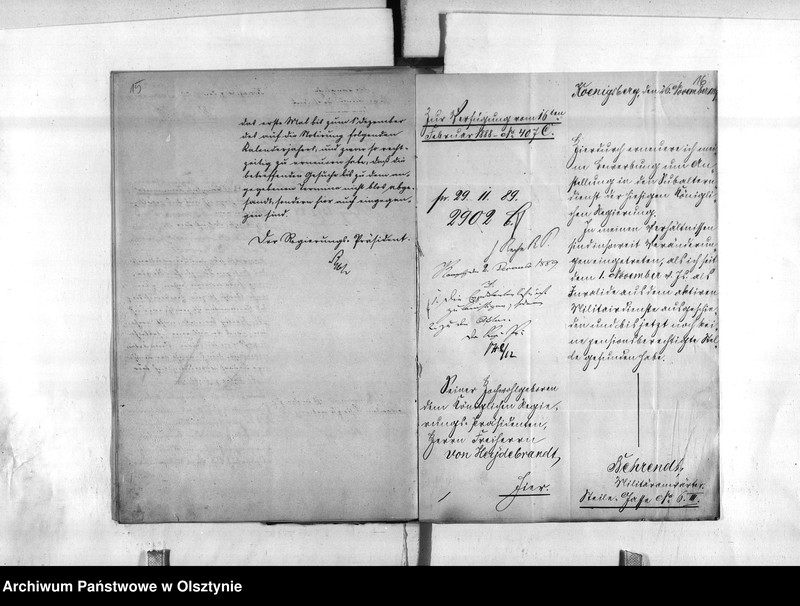 15
das erste Mal bis zum 1. Dezember
des auf die Notirung folgenden
Kalenderjahres, und zwar so recht-
zeitig zu erneuern habe, daß die
betreffenden Gesuche bis zu dem an-
gegebenen Termine nicht blos abge-
sandt, sondern hier auch eingegan-
gen sind.
Der Regierungs-Präsident.
Zur Verfügung vom 16ten
Februar 1888 - No 407 C.
pr. 29. 11. 89.
2902
Seiner Hochwohlgeboren
dem Königlichen Regie-
rungs-Präsidenten,
Herrn Freiherrn
von Heydebrandt,
Hier.
16
Koenigsberg, den 26. November
Hierdurch erneuere ich mei-
ne Bewerbung um An-
stellung in den Subaltern-
dienst der hiesigen Königli-
chen Regierung.
In meinen Verhältnissen
sind insoweit Veränderun-
gen eingetreten, als ich seit
dem 1. November v. Js. als
Invalide aus dem aktiven
Militairdienste ausgeschie-
den und bis jetzt noch kei-
ne pensionsberechtigte Stel-
le gefunden habe.
Behrendt,
Militäranwärter.
Steile-Gasse No. 6. II.
Archiwum Państwowe w Olsztynie